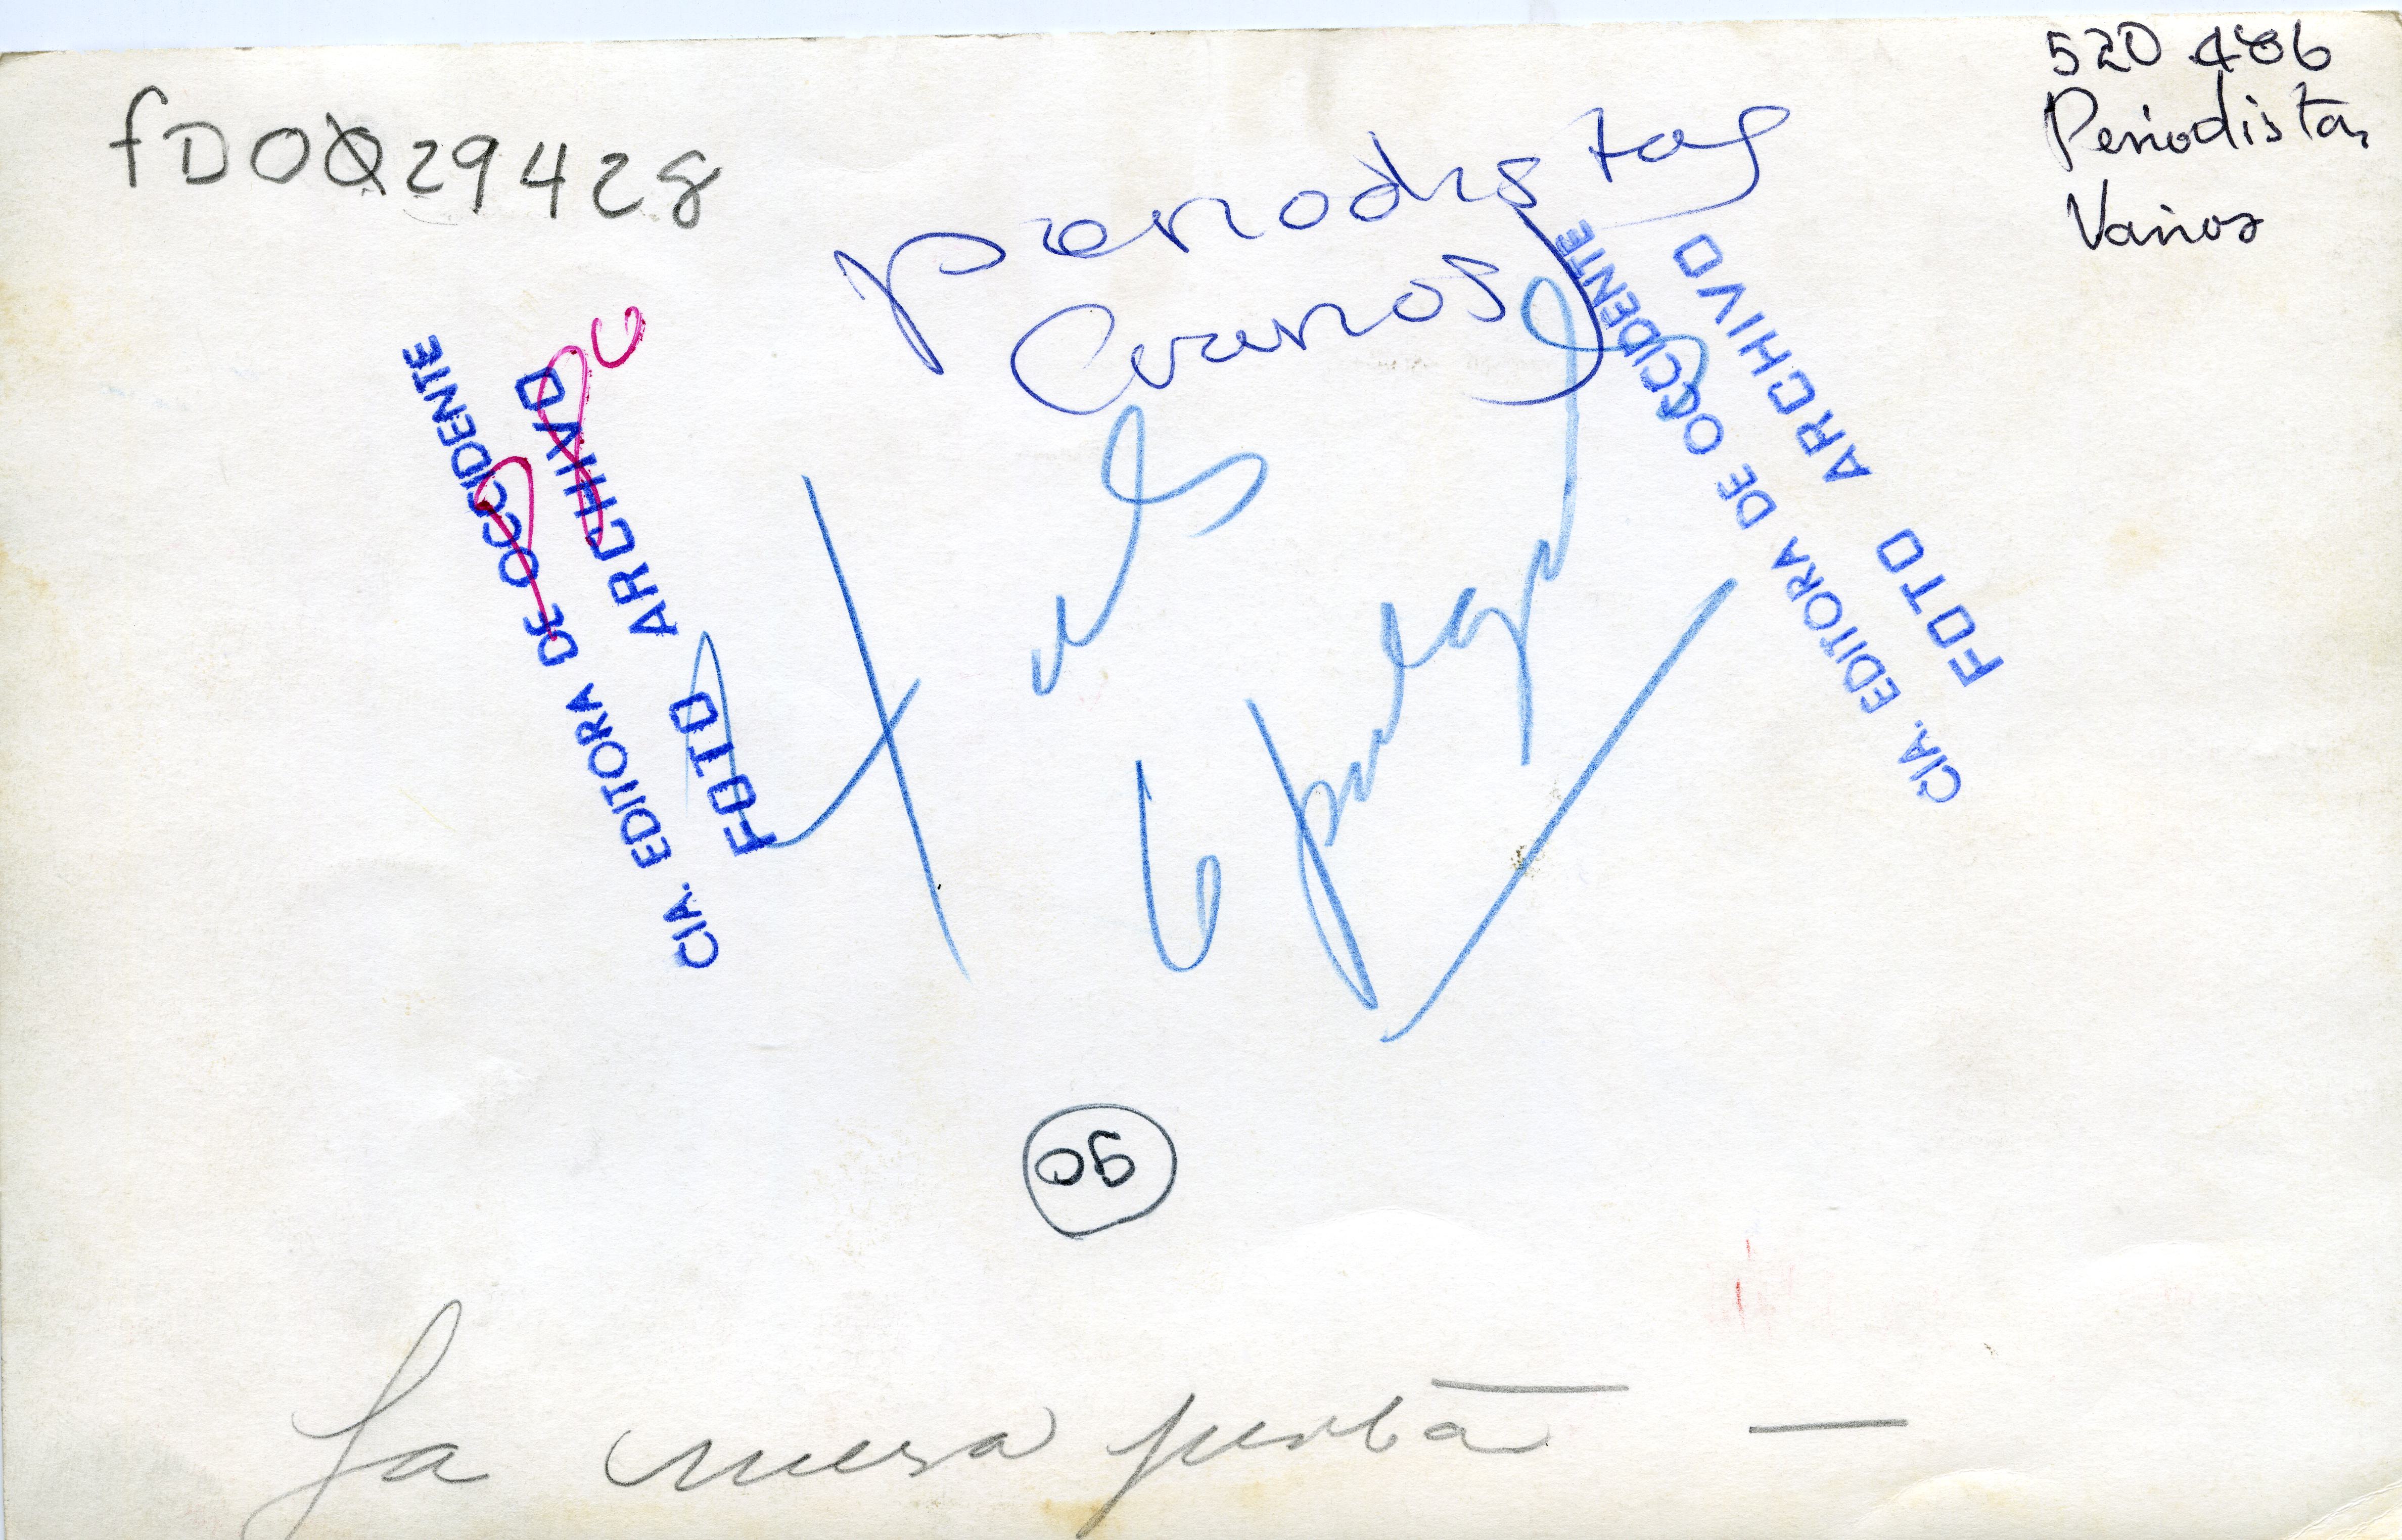 fD0029428
520.486
Periodistas
Varios
periodistas
Varios
CIA. EDITORA DE OCCIDENTE
FOTO ARCHIVO
CIA. EDITORA DE OCCIDENTE
FOTO ARCHIVO
6 pulgad
La mesa puesta —